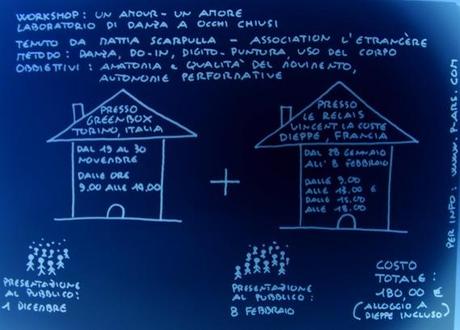 WORKSHOP: UN AMOUR - UN AMORE
LABORATORIO DI DANZA A OCCHI CHIUSI
TENUTO DA MATTIA SCARPULLA - ASSOCIATION L'ETRANGÈRE
METODO: DANZA, DO-IN, DIGITO-PUNTURA, USO DEL CORPO
OBBIETTIVI: ANATOMIA & QUALITÀ DEL MOVIMENTO,
AUTONOMIE PERFORMATIVE
PRESSO
GREENBOX
TORINO, ITALIA
DAL 19 AL 30
NOVEMBRE
DALLE ORE
9.00 ALLE 14.00
+
PRESSO
LE RELAIS
VINCENT LA COSTE
DIEPPE, FRANCIA
DAL 28 GENNAIO
ALL' 8 FEBBRAIO
DALLE 9.00
ALLE 13.00 E
DALLE 15.00
ALLE 18.00
PRESENTAZIONE
AL PUBBLICO:
1 DICEMBRE
PRESENTAZIONE
AL PUBBLICO:
8 FEBBRAIO
COSTO
TOTALE:
180,00 €
(ALLOGGIO A
DIEPPE INCLUSO)
PER INFO: WWW. P-ARS. COM